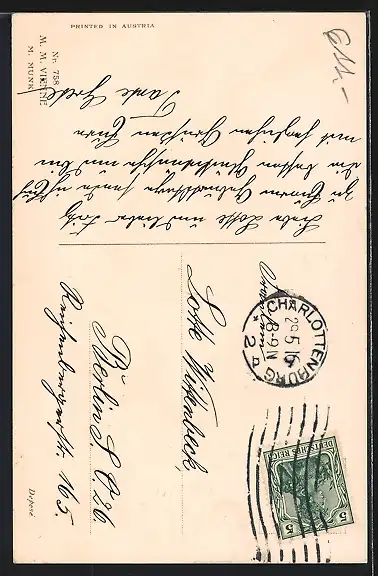 PRINTED IN AUSTRIA
Nr. 758
M. M. VIENNE
M. MUNK
Liebe Lotte und lieber Fritz
zu Eurem Geburtstage sende ich Euch
die besten Glückwünsche und bin
mit herzlichen Grüßen Eure
Tante Grete
Lotte Wittenbeck
Berlin S.O. 26.
Reichenbergerstr. 165.
CHARLOTTENBURG
29.5.16
8-9N
* 2 *
DEUTSCHES REICH
5 5
Déposé